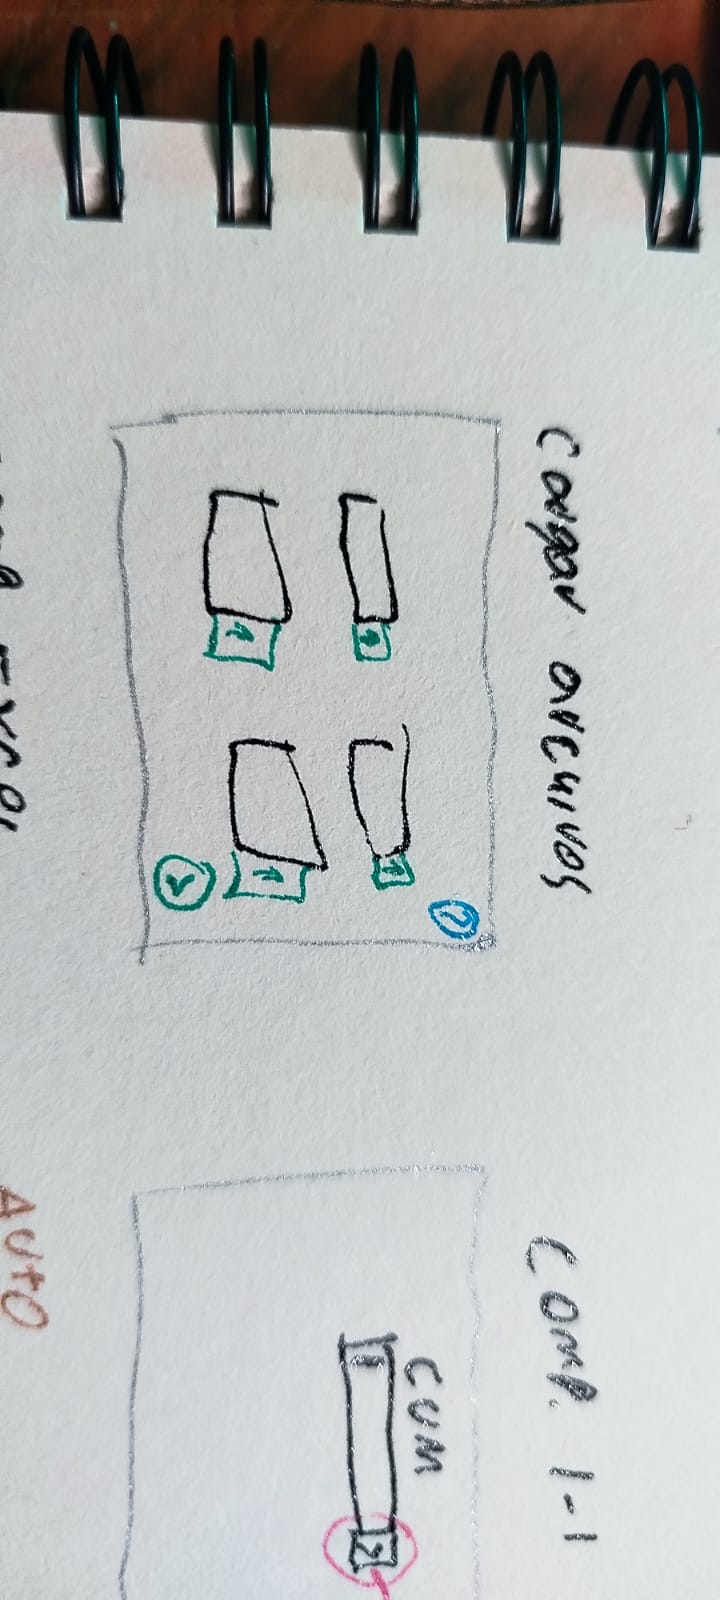 Cargar archivos
?
COMP. 1-1
CUM
AUTO